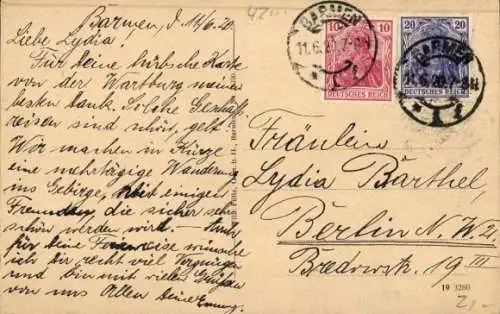 Barmen, d. 11/6. 20.
Liebe Lydia!
Für Deine hübsche Karte
von der Wartburg meinen
besten Dank. Solche Geschäfts-
reisen sind schön, gelt?
Wir machen in Kürze
eine mehrtägige Wanderung
ins Gebirge, mit einigen
Freunden, die sicher sehr
schön werden wird. – Auch
für Deine Ferienreise wünsche
ich Dir recht viel Vergnügen
und bin mit vielen Grüßen
von uns Allen Deine
BARMEN
11.6.20.7-8N
10
10
DEUTSCHES REICH
20
20
DEUTSCHES REICH
BARMEN
11.6.20.7-8N
Fräulein
Lydia Barthel,
Berlin N.W. 21
Bredowstr. 19 III
19 3260
2,-